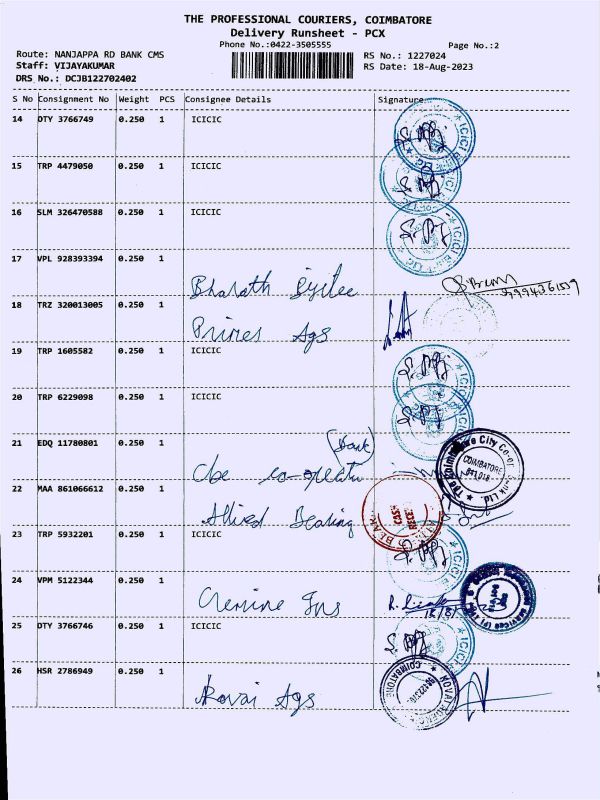 THE PROFESSIONAL COURIERS, COIMBATORE
Delivery Runsheet - PCX
Phone No.:0422-3505555 Page No.:2
Route: NANJAPPA RD BANK CMS RS No.: 1227024
Staff: VIJAYAKUMAR RS Date: 18-Aug-2023
DRS No.: DCJB122702402
S No Consignment No Weight PCS Consignee Details Signature
14 DTY 3766749 0.250 1 ICICIC
15 TRP 4479050 0.250 1 ICICIC
16 SLM 326470588 0.250 1 ICICIC
17 VPL 928393394 0.250 1
Bharath
18 TRZ 320013005 0.250 1
Primes Ags
19 TRP 1605582 0.250 1 ICICIC
20 TRP 6229098 0.250 1 ICICIC
21 EDQ 11780801 0.250 1
(Bank)
Cbe co-operative
COIMBATORE
641 018
22 MAA 861066612 0.250 1
Allied Bearing
23 TRP 5932201 0.250 1 ICICIC
24 VPM 5122344 0.250 1
25 DTY 3766746 0.250 1 ICICIC
26 HSR 2786949 0.250 1
Kovai Ags
COIMBATORE